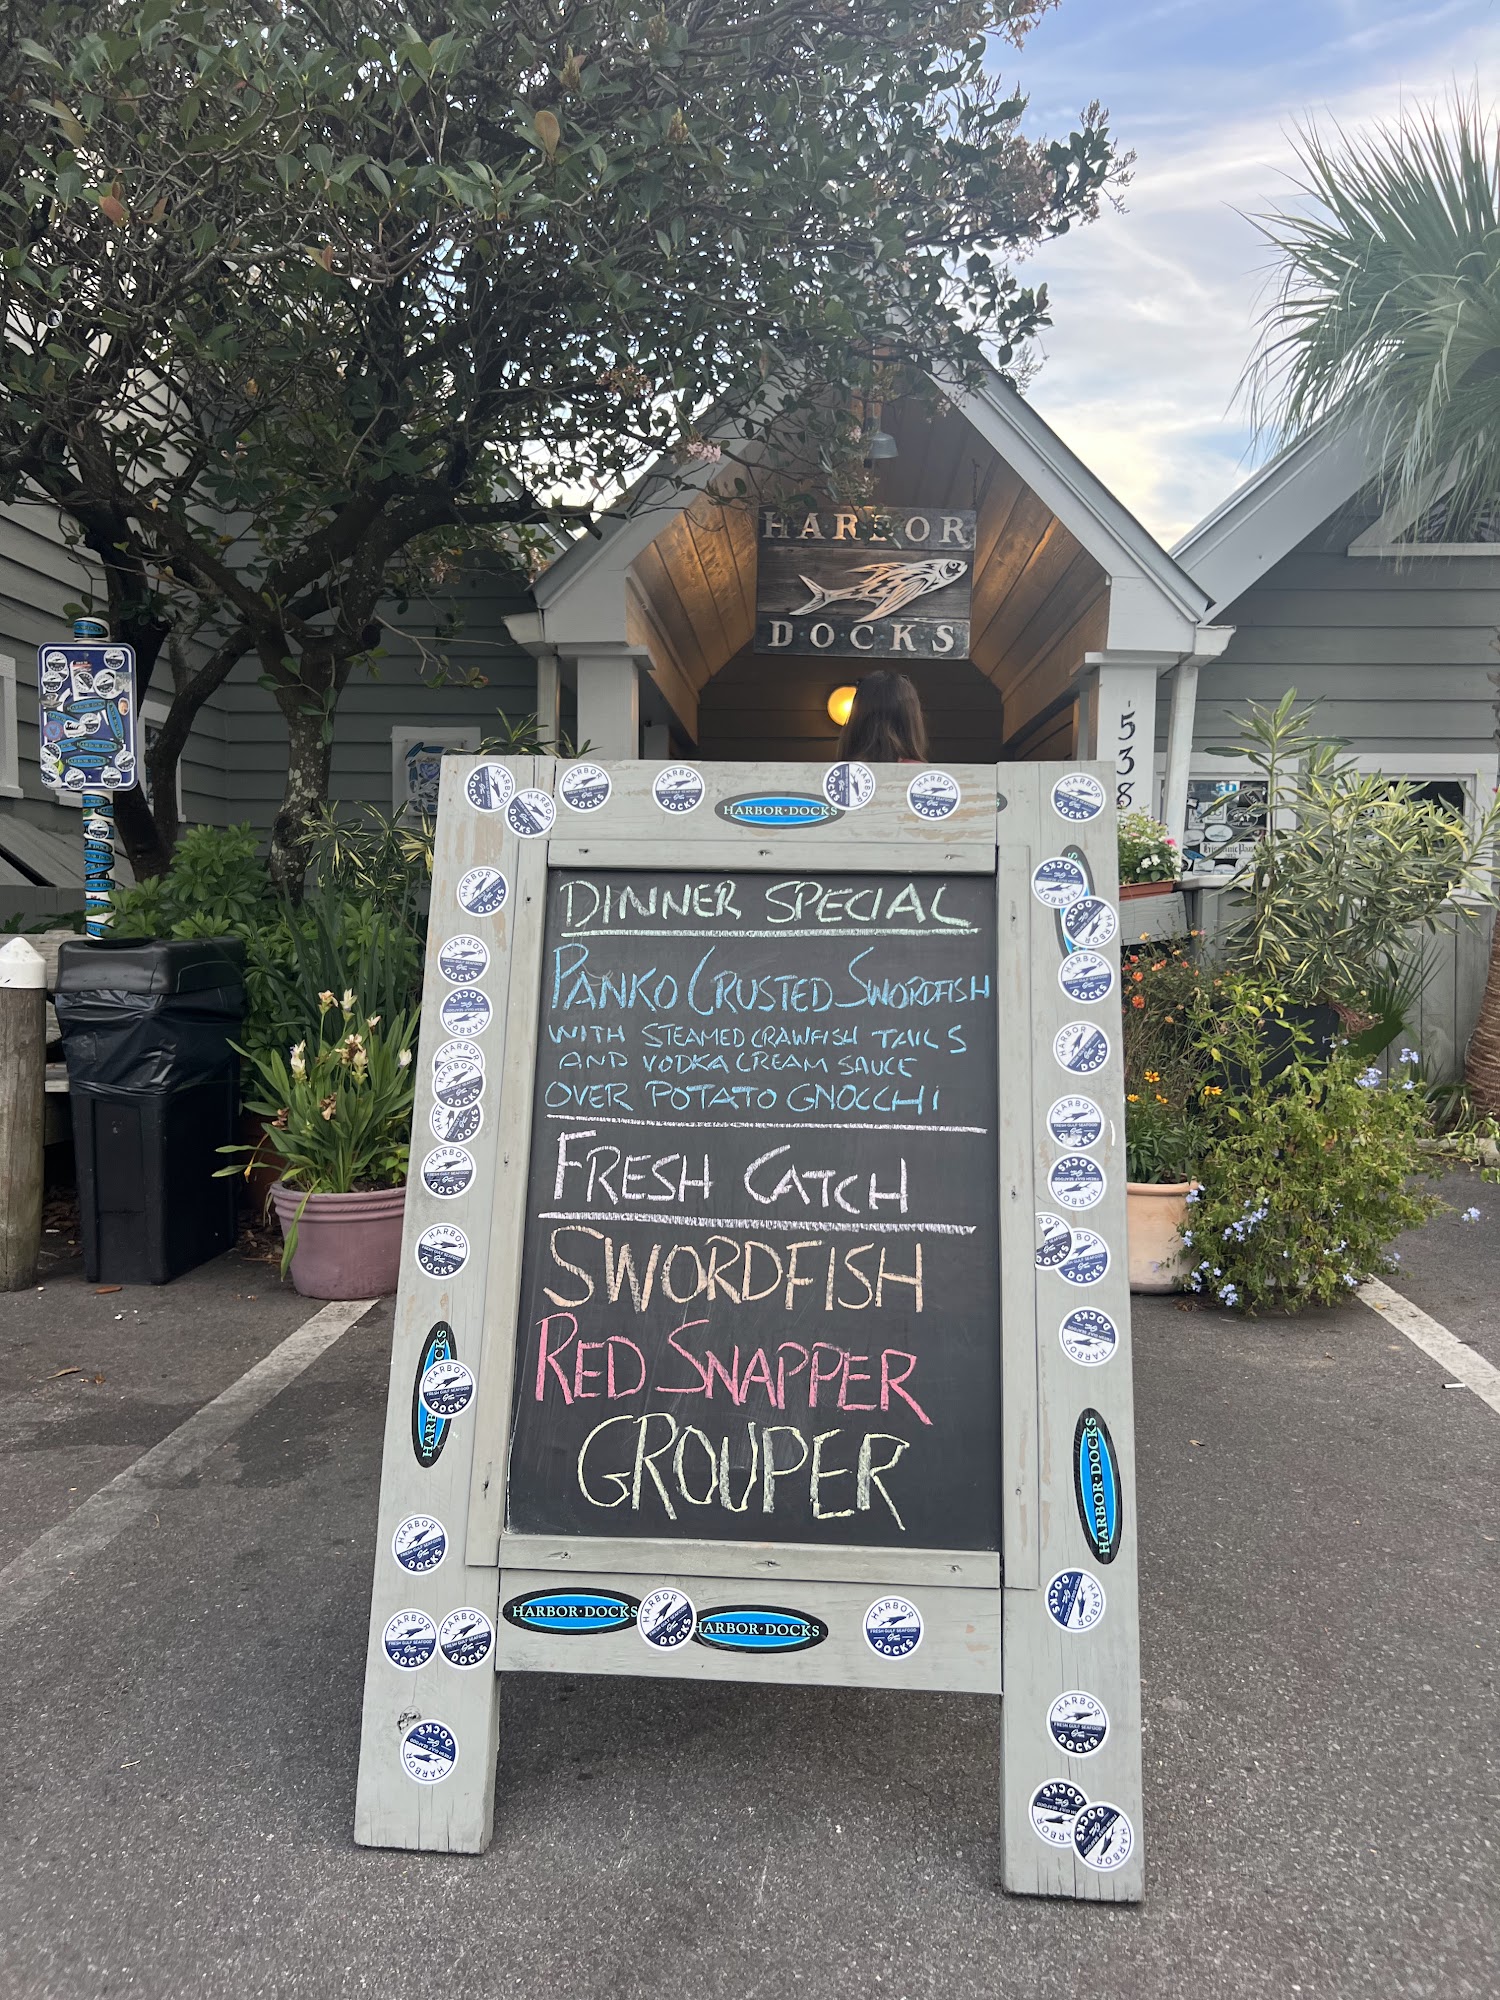 HARBOR
DOCKS
538
HARBOR·DOCKS
DINNER SPECIAL
PANKO CRUSTED SWORDFISH
WITH STEAMED CRAWFISH TAILS
AND VODKA CREAM SAUCE
OVER POTATO GNOCCHI
FRESH CATCH
SWORDFISH
RED SNAPPER
GROUPER
HARBOR·DOCKS
HARBOR·DOCKS
HARBOR·DOCKS
HARBOR
FRESH GULF SEAFOOD
DOCKS